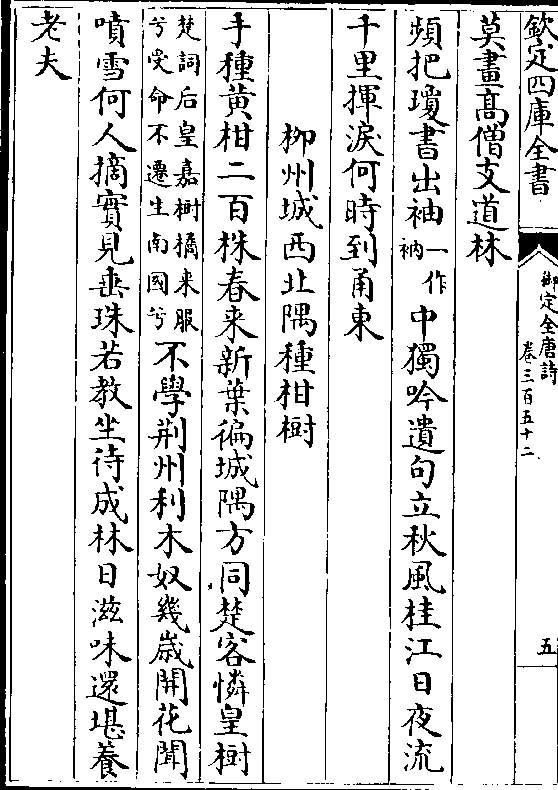 欽定四庫全書
御定全唐詩
卷三百五十二
五
莫畫高僧支道林
頻把瓊書出袖一作衲中獨吟遺句立秋風桂江日夜流
千里揮淚何時到甬東
柳州城西北隅種柑樹
手種黃柑二百株春来新葉徧城隅方同楚客憐皇樹
楚詞后皇嘉樹橘来服
兮受命不遷生南國兮
不學荆州利木奴幾歲開花聞
噴雪何人摘實見垂珠若教坐待成林日滋味還堪養
老夫